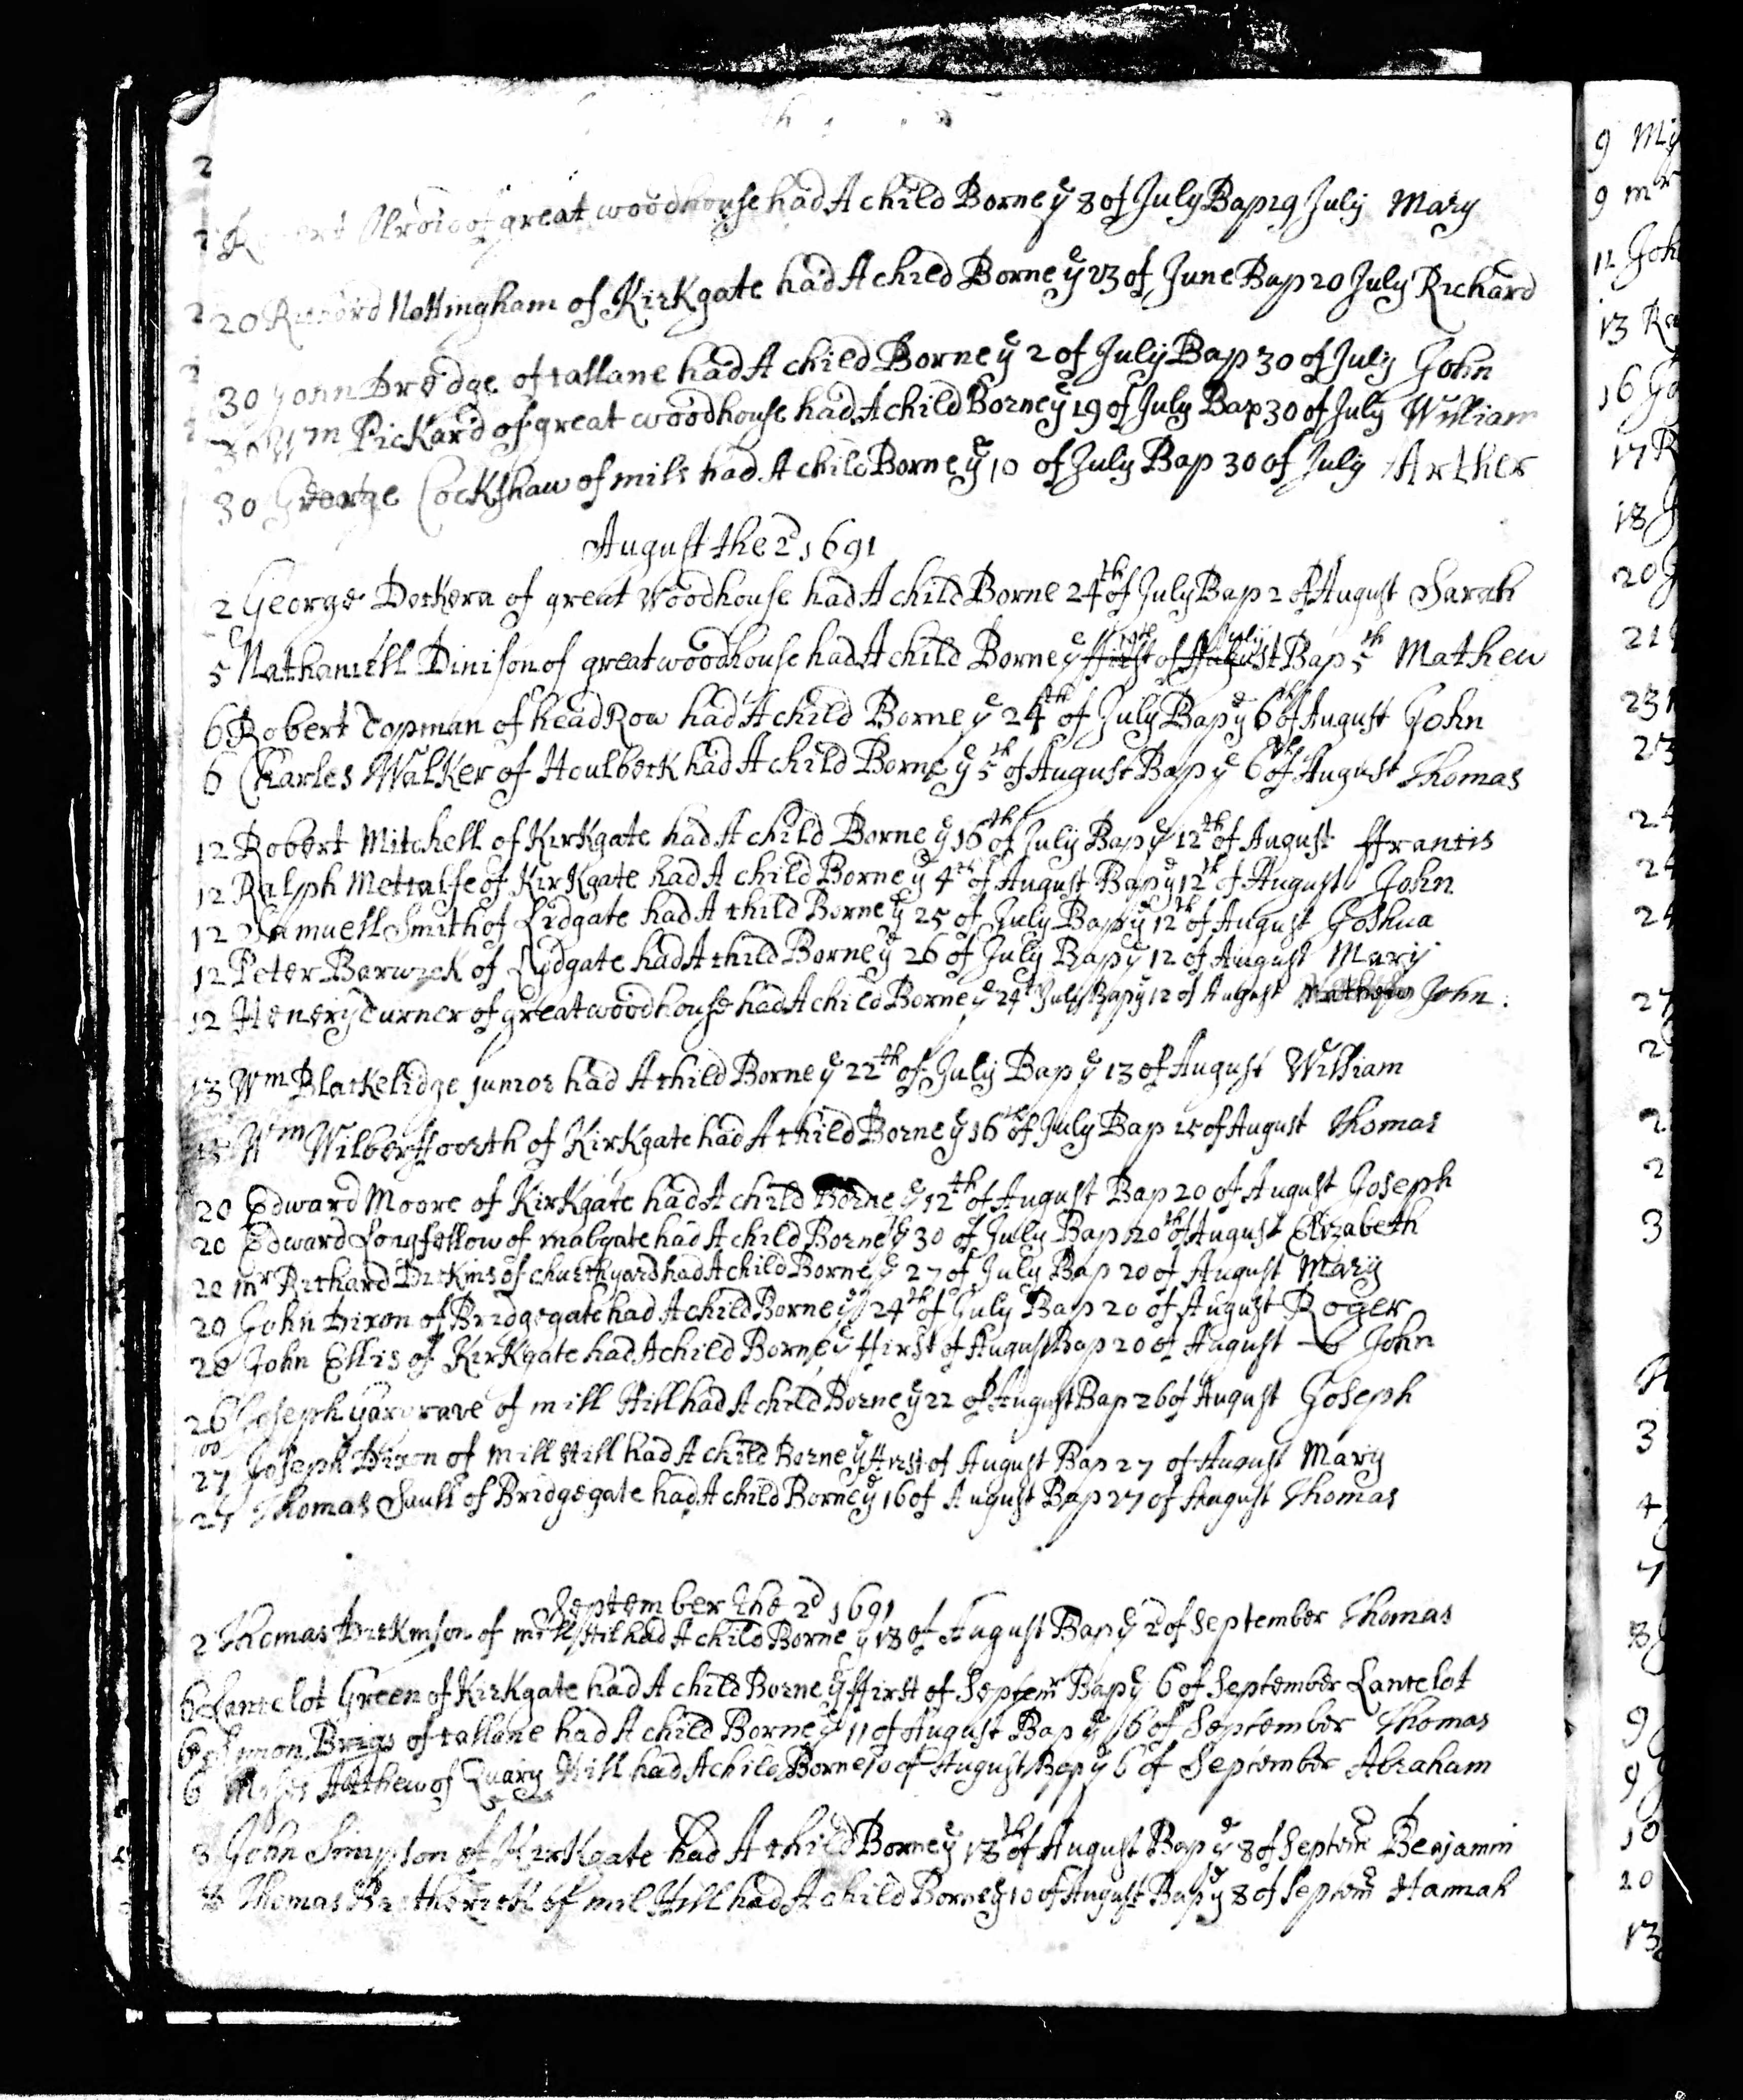 2
of great woodhouse had A child Borne ye 8 of July Bap 19 July Mary
20 Nottingham of KirKgate had A child Borne ye 23 of June Bap 20 July Richard
30 John Dredge of tallane had A child Borne ye 2 of July Bap 30 of July John
30 Wm PicKard of great woodhouse had A child Borne ye 19 of July Bap 30 of July William
30 George CocKshaw of mils had A child Borne ye 10 of July Bap 30 of July Arther
August the 2d 1691
2 George of great Woodhouse had A child Borne 24th of July Bap 2 of August Sarah
5 Nathaniell Dinison of great woodhouse had A child Borne ye 19th of July Bap 5th Mathew
6 Robert Topman of head Row had A child Borne ye 24th of July Bap ye 6th of August John
6 Charles WalKer of HoulbecK had A child Borne ye 5th of August Bap ye 6th of August Thomas
12 Robert Mitchell of KirKgate had A child Borne ye 16th of July Bap ye 12th of August ffrancis
12 Ralph Metcalfe of KirKgate had A child Borne ye 4th of August Bap ye 12th of August John
12 Samuell Smith of Lidgate had A child Borne ye 25 of July Bap ye 12th of August Joshua
12 Peter BarwicK of Lydgate had A child Borne ye 26 of July Bap ye 12 of August Mary
12 Henery Turner of great woodhouse had A child Borne ye 24t July Bap ye 12 of August John
13 Wm Blackelidge junior had A child Borne ye 22th of July Bap ye 13 of August William
Wm Wilberffoorth of KirKgate had A child Borne ye 16th of July Bap of August Thomas
20 Edward Moore of KirKgate had A child Borne ye 12th of August Bap 20 of August Joseph
20 Edward Longfellow of mabgate had A child Borne ye 30 of July Bap 20th of August Elizabeth
20 mr Richard DicKins of churchyard had A child Borne ye 27 of July Bap 20 of August Mary
20 John Dixon of Bridgegate had A child Borne ye 24th of July Bap 20 of August Roger
20 John Ellis of KirKgate had A child Borne ye ffirst of August Bap 20 of August John
26 Joseph Hargrave of mill Hill had A child Borne ye 22 of August Bap 26 of August Joseph
100
27 Joseph Dixon of mill Hill had A child Borne ye ffirst of August Bap 27 of August Mary
27 Thomas Sault of Bridgegate had A child Borne ye 16 of August Bap 27 of August Thomas
September the 2d 1691
2 Thomas DicKinson of mill Hil had A child Borne ye 18 of August Bap ye 2 of September Thomas
6 Lancelot Green of KirKgate had A child Borne ye ffirst of Septemr Bap ye 6 of September Lancelot
6 Simon Brigs of tallane had A child Borne ye 11 of August Bap ye 6 of September Thomas
6 Moses of Quary Hill had A child Borne 10 of August Bap ye 6 of September Abraham
8 John Simpson of KirKgate had A child Borne ye 18th of August Bap ye 8 of Septem Benjamin
8 Thomas of mil Hill had A child Borne ye 10 of August Bap ye 8 of Septem Hannah